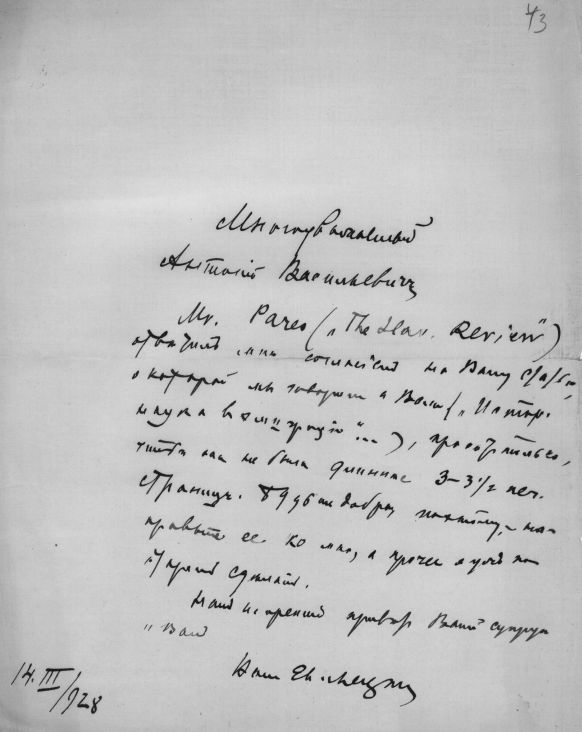 43
Многоуважаемый
Антоній Васильевичъ
Mr. Pares („The Slav. Review“)
отвѣтилъ мнѣ согласіемъ на Вашу статью,
о которой мы говорили с Вами („Истор.
наука в эмиграціи“...),
чтобы она не была длиннѣе 3–3½ печ.
страницъ. Будьте добры поэтому, на-
правьте ее ко мнѣ, а прочее я уже по-
сдѣлаю.
Мой искренній привѣт Вашей супругѣ
и Вам
Ваш
14.III/928